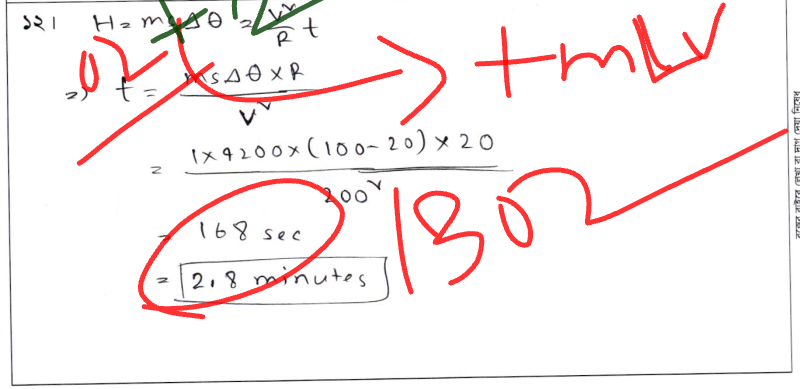 ১২। H = msΔθ = V²/R t
+mLv
⇒ t = msΔθ×R / V²
= 1×4200×(100-20)×20 / 200²
= 168 sec
= 2.8 minutes